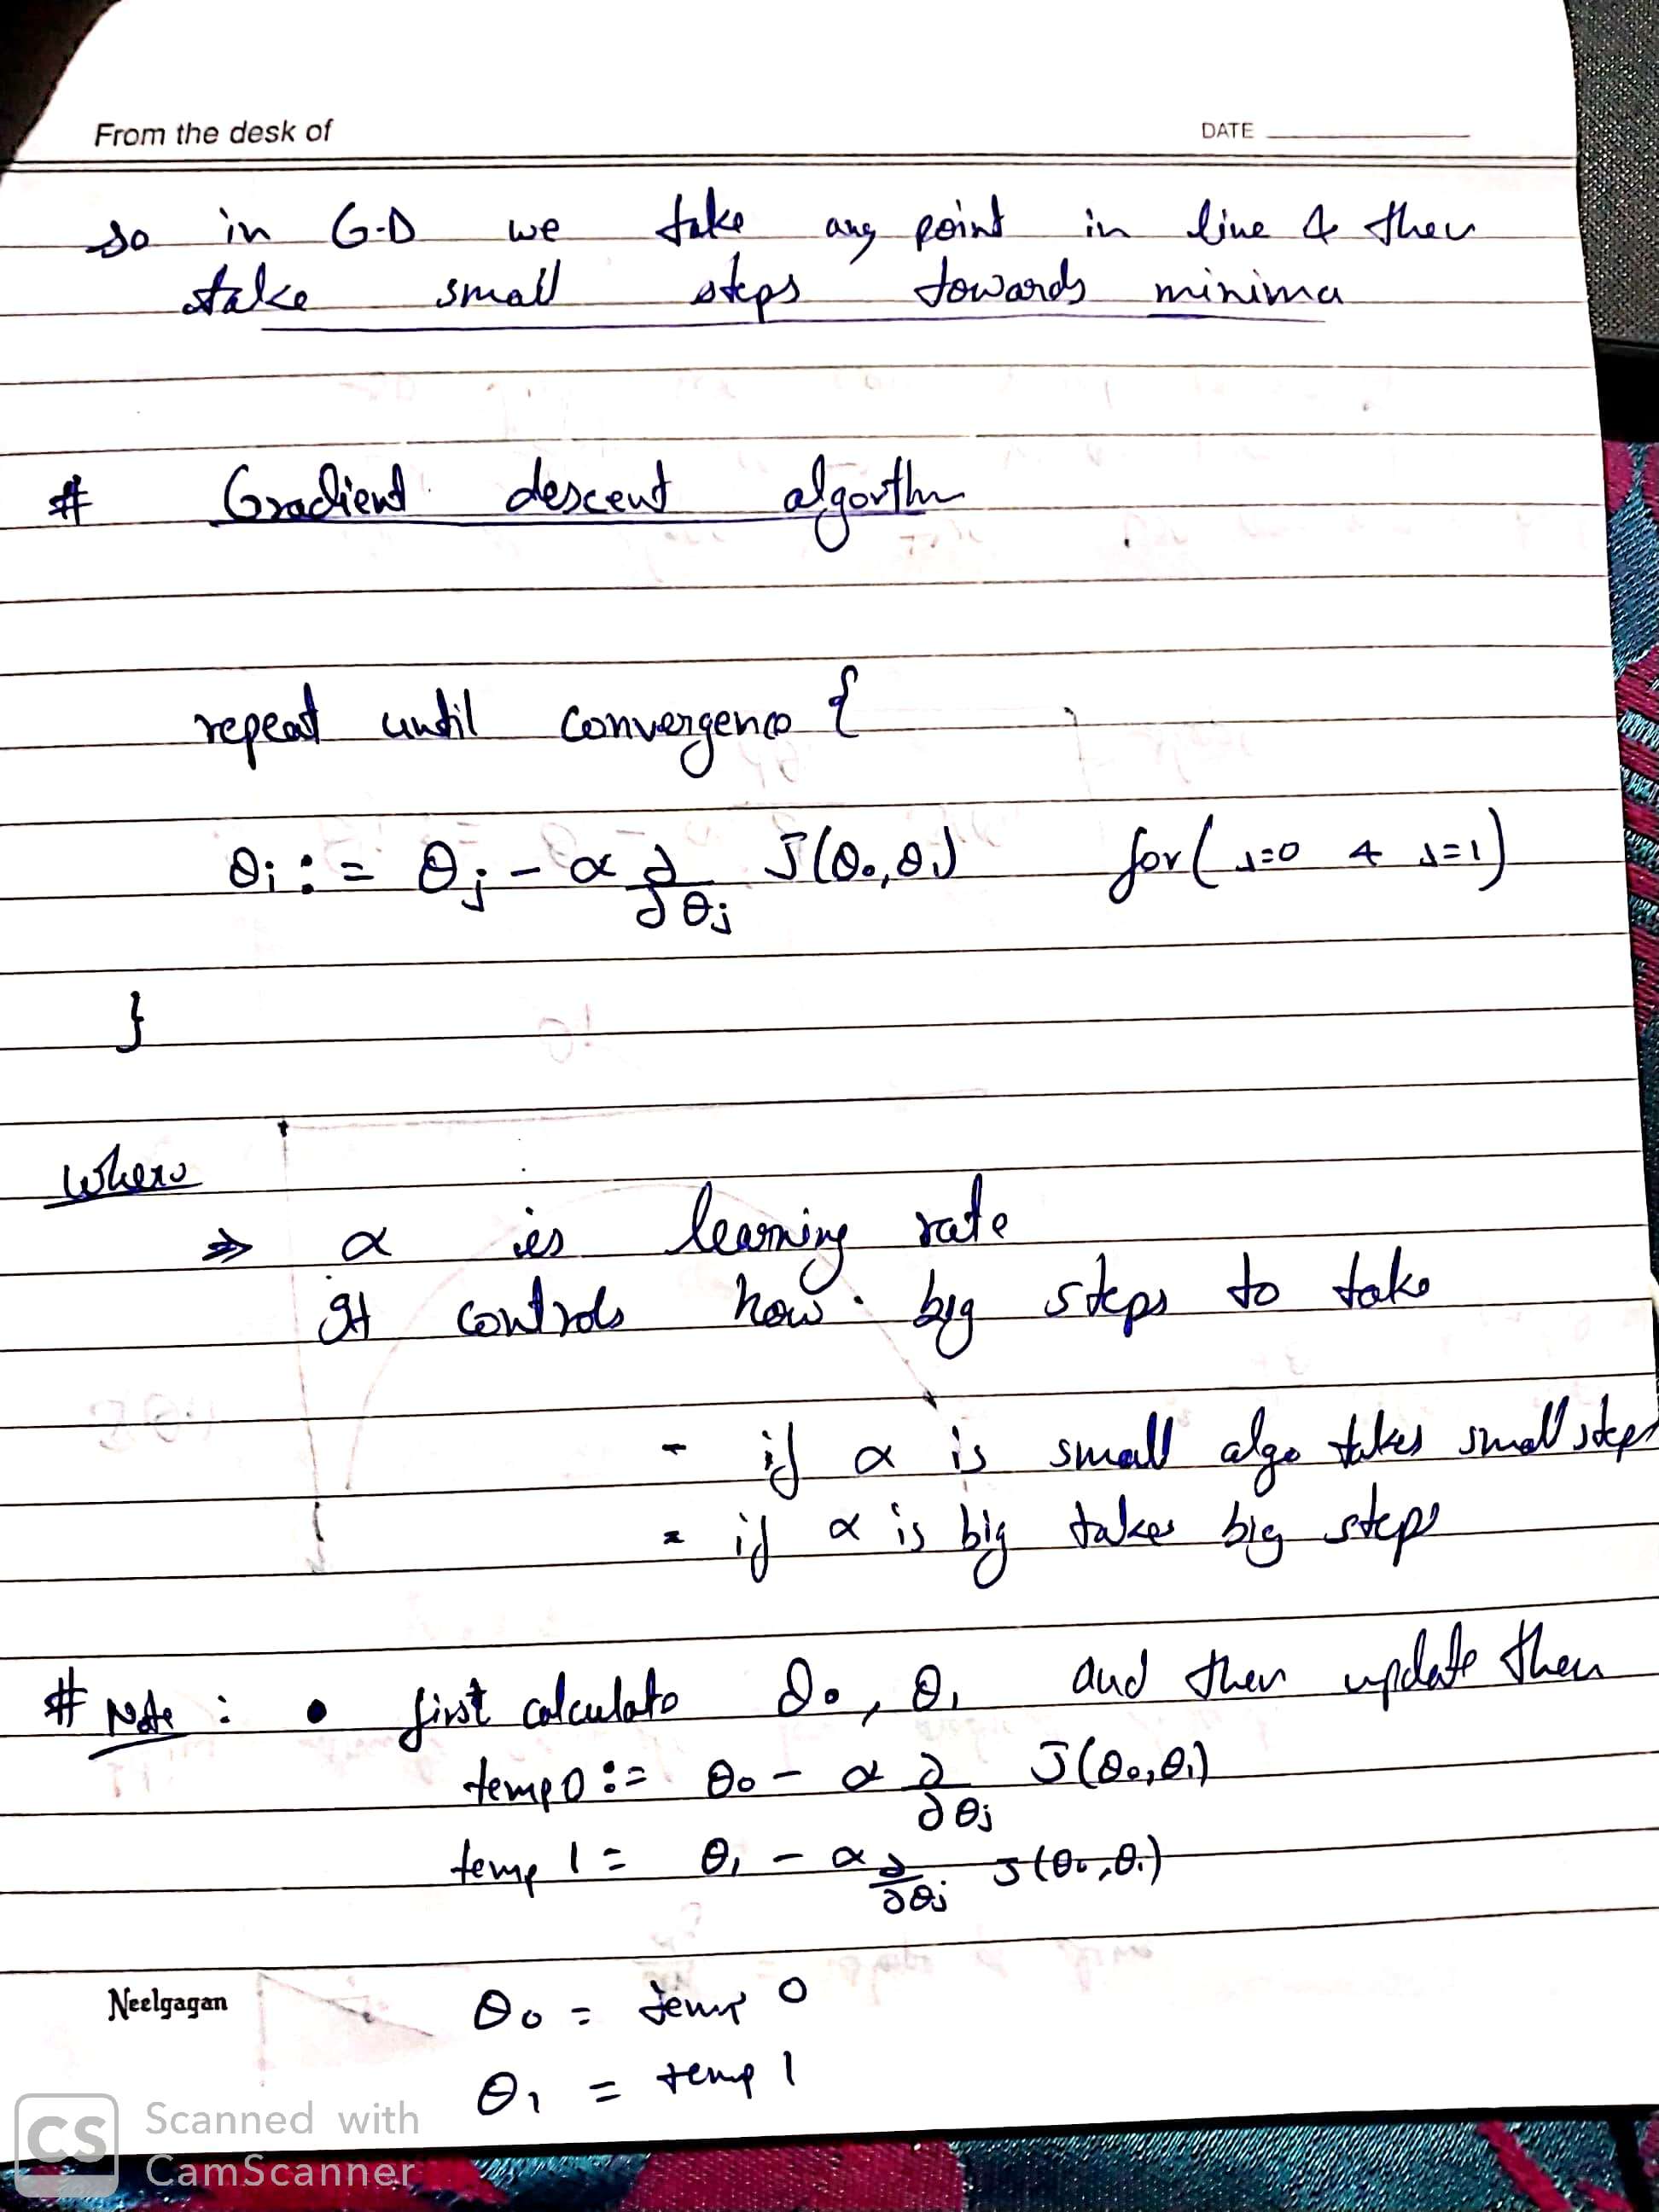 From the desk of DATE
so in G.D we take any point in line & then
take small steps towards minima
# Gradient descent algorthm
repeat until convergence {
θj := θj - α ∂/∂θj J(θ0, θ1) for (j=0 & j=1)
}
where
⇒ α is learning rate
It controls how big steps to take
- if α is small algo takes small steps
- if α is big takes big steps
# Note : • first calculate θ0, θ1 and then update then
temp0 := θ0 - α ∂/∂θj J(θ0, θ1)
temp 1 = θ1 - α ∂/∂θj J(θ0, θ1)
Neelgagan
θ0 = temp 0
θ1 = temp 1
CS Scanned with
CamScanner